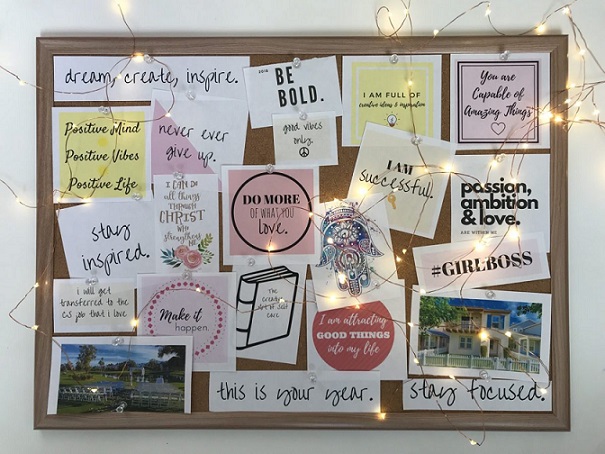 dream, create, inspire.
2018
BE
BOLD.
I AM FULL OF
creative ideas & inspiration
You are
Capable of
Amazing Things
Positive Mind
Positive Vibes
Positive Life
never ever
give up.
good vibes
only.
I AM
successful.
passion,
ambition
& love.
ARE WITHIN ME
I CAN DO
all things
THROUGH
CHRIST
WHO
strengthens
ME
DO MORE
OF WHAT YOU
Love.
stay
inspired.
#GIRLBOSS
i will get
transferred to the
CS job that i love
Make it
happen.
The
Creative
Art of Self
Care
I am attracting
GOOD THINGS
into my life
this is your year.
stay focused.